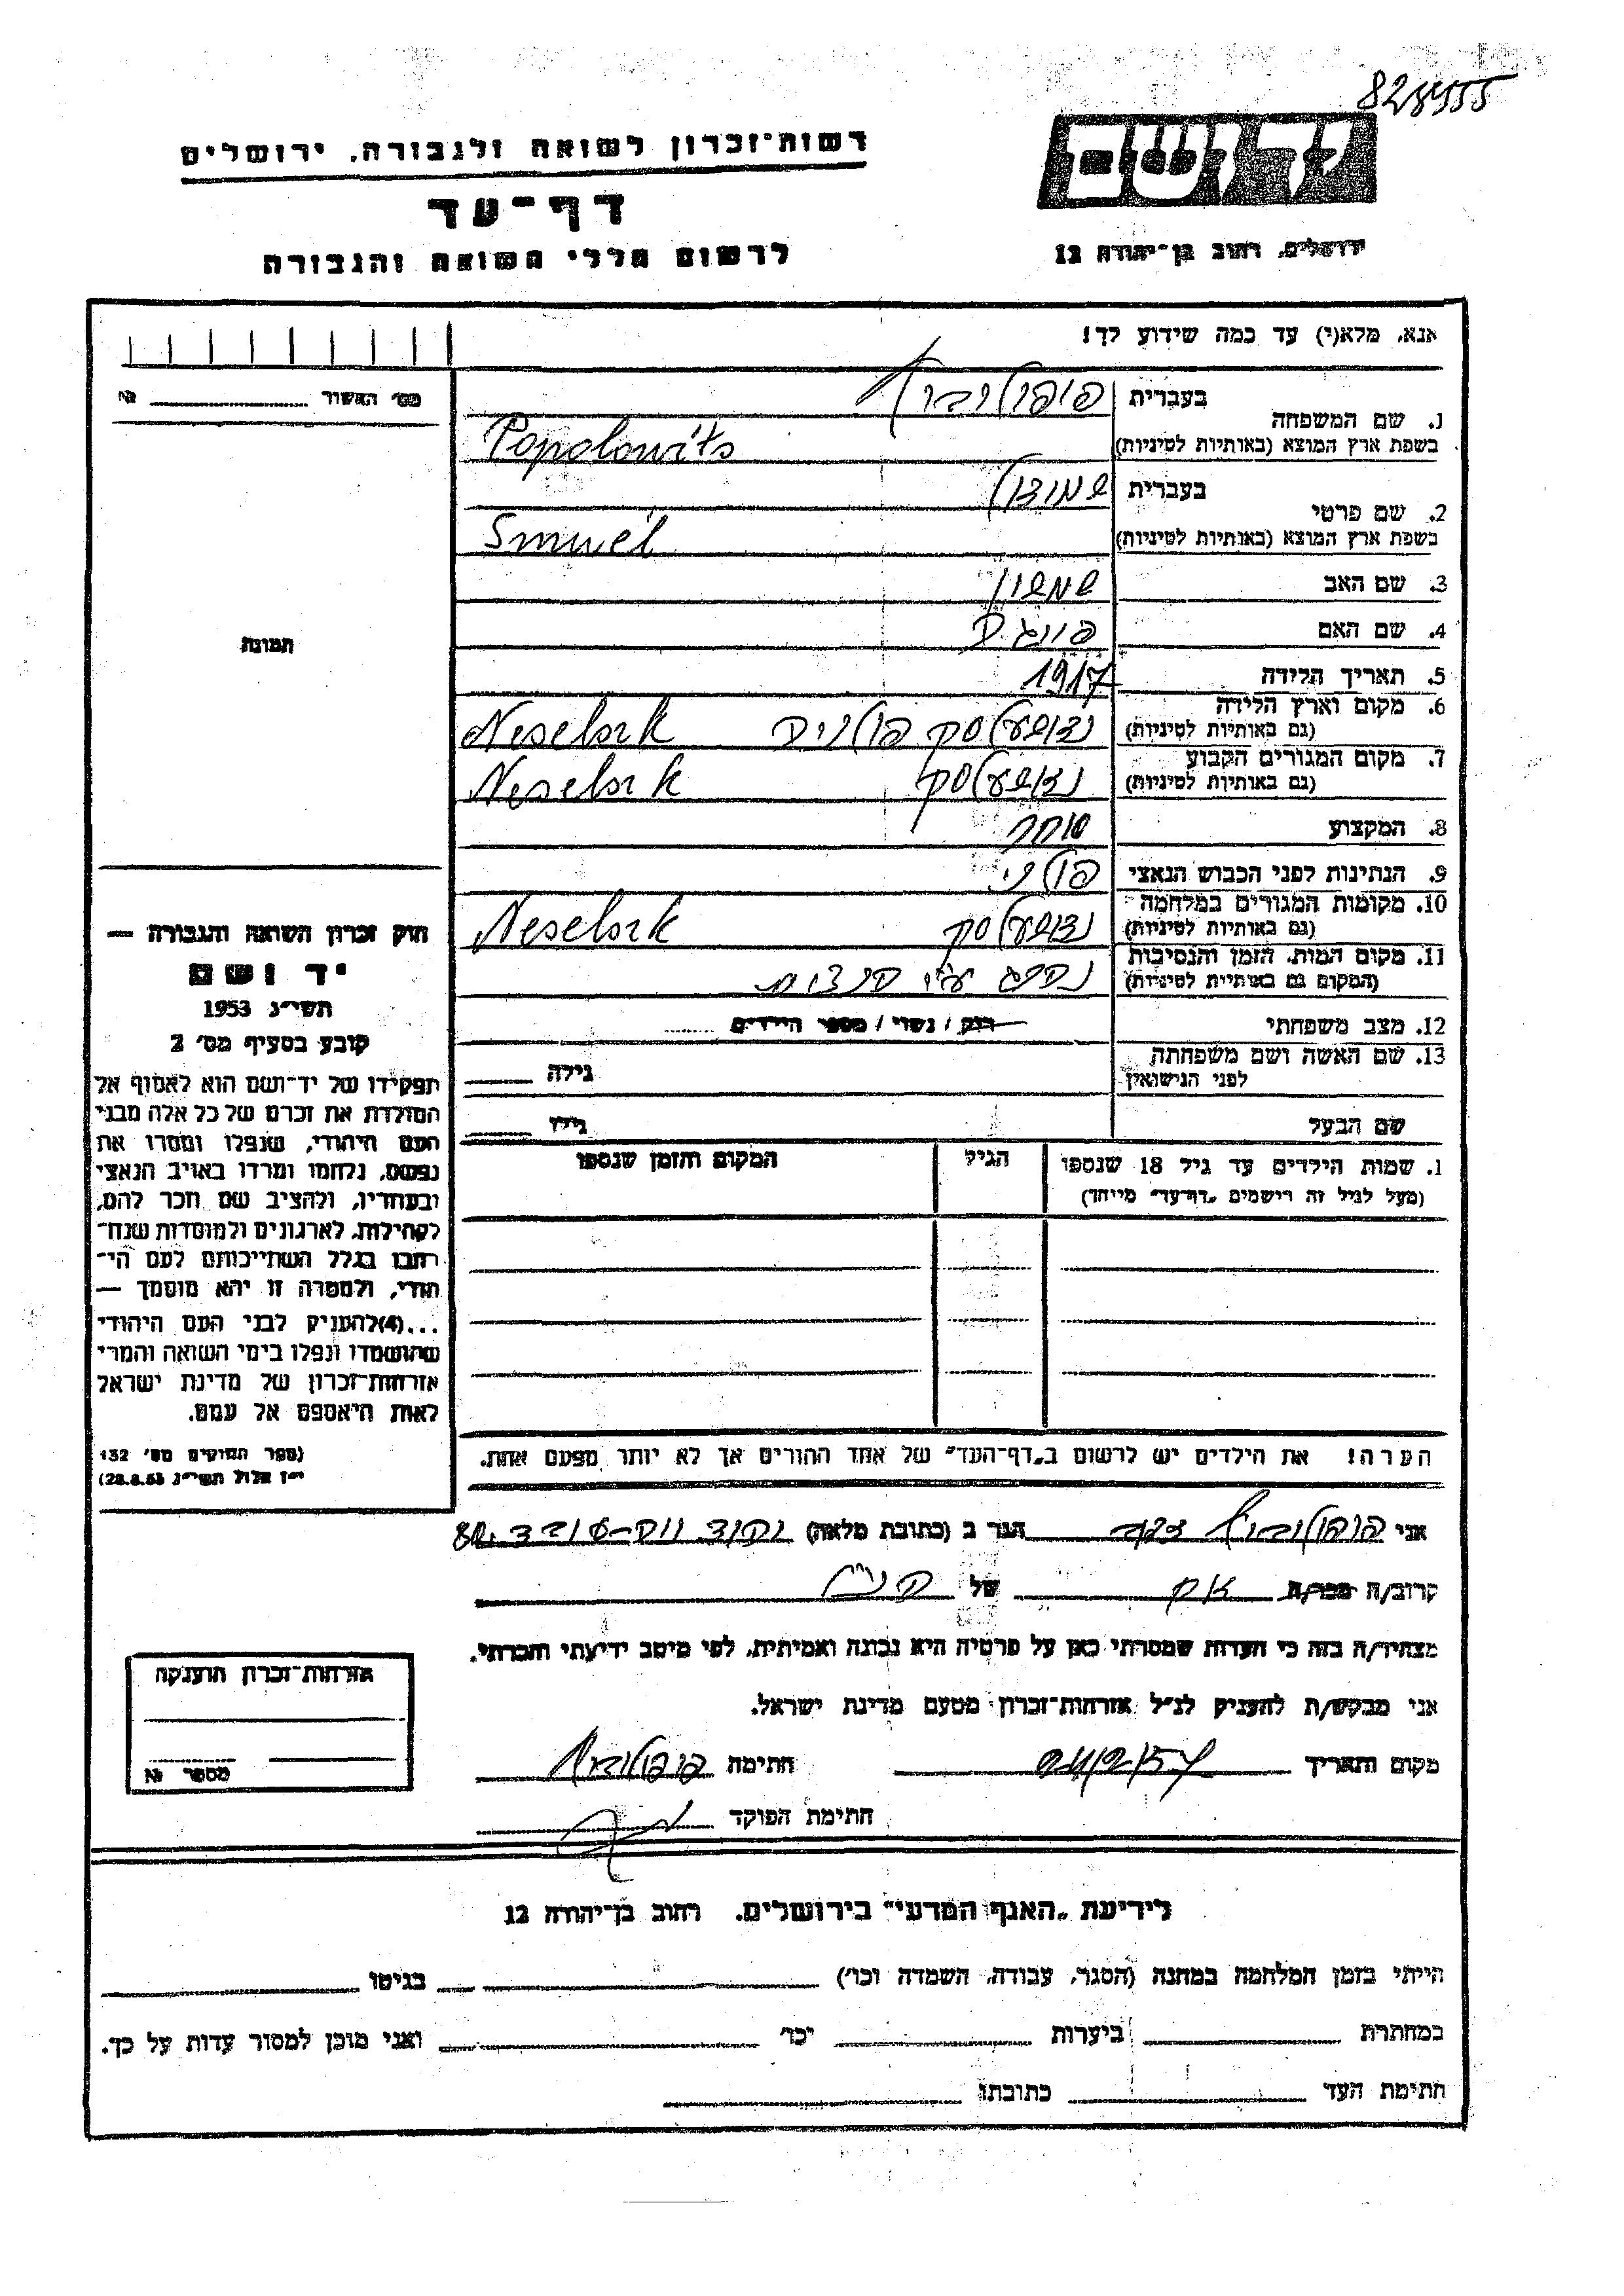 828555
רשות־זכרון לשואה ולגבורה, ירושלים
דף־עד
לרשום חללי השואה והגבורה
יד ושם
ירושלים, רחוב בן־יהודה 12
אנא, מלא(י) עד כמה שידוע לך!
מס׳ האשור № 
1. שם המשפחה
בעברית פופולוביץ
בשפת ארץ המוצא (באותיות לטיניות) Popolowits
2. שם פרטי
בעברית שמואל
בשפת ארץ המוצא (באותיות לטיניות) Smuel
3. שם האב שמשון
4. שם האם
5. תאריך הלידה 1917
6. מקום וארץ הלידה
(גם באותיות לטיניות) Neselsk
7. מקום המגורים הקבוע
(גם באותיות לטיניות) Neselsk
8. המקצוע סוחר
9. הנתינות לפני הכבוש הנאצי פולני
10. מקומות המגורים במלחמה
(גם באותיות לטיניות) Neselsk
11. מקום המות, הזמן והנסיבות
(המקום גם באותיות לטיניות) נהרג ע״י
12. מצב משפחתי רוק / נשוי / מספר הילדים
13. שם האשה ושם משפחתה
לפני הנישואין גילה
שם הבעל גילו
1. שמות הילדים עד גיל 18 שנספו הגיל המקום והזמן שנספו
(מעל לגיל זה רישמים „דף־עד״ מיוחד)
הערה! את הילדים יש לרשום ב„דף־העד״ של אחד ההורים אך לא יותר מפעם אחת.
תמונה
חוק זכרון השואה והגבורה —
יד ושם
תשי״ג 1953
קובע בסעיף מס׳ 2
תפקידו של יד־ושם הוא לאסוף אל
המולדת את זכרם של כל אלה מבני
העם היהודי, שנפלו ומסרו את
נפשם, נלחמו ומרדו באויב הנאצי
ובעוזריו, ולהציב שם וזכר להם,
לקהילות, לארגונים ולמוסדות שנח־
רבו בגלל השתייכותם לעם הי־
הודי, ולמטרה זו יהא מוסמך —
...(4)להעניק לבני העם היהודי
שהושמדו ונפלו בימי השואה והמרי
אזרחות־זכרון של מדינת ישראל
לאות היאספם אל עמם.
(ספר החוקים מס׳ 132
י״ז אלול תשי״ג 28.8.53)
אני פופולוביץ הגר ב (כתובת מלאה)
קרוב/ה מכר/ה אח של
מצהיר/ה בזה כי העדות שמסרתי כאן על פרטיה היא נכונה ואמיתית, לפי מיטב ידיעתי והכרתי.
אני מבקש/ת להעניק לנ״ל אזרחות־זכרון מטעם מדינת ישראל.
מקום ותאריך חתימה פופולוביץ
חתימת הפוקד
אזרחות־זכרון הוענקה
מספר №
לידיעת „האגף המדעי״ בירושלים, רחוב בן־יהודה 12
הייתי בזמן המלחמה במחנה (הסגר, עבודה, השמדה וכו׳) בגיטו
במחתרת ביערות וכו׳ ואני מוכן למסור עדות על כך.
חתימת העד כתובתו